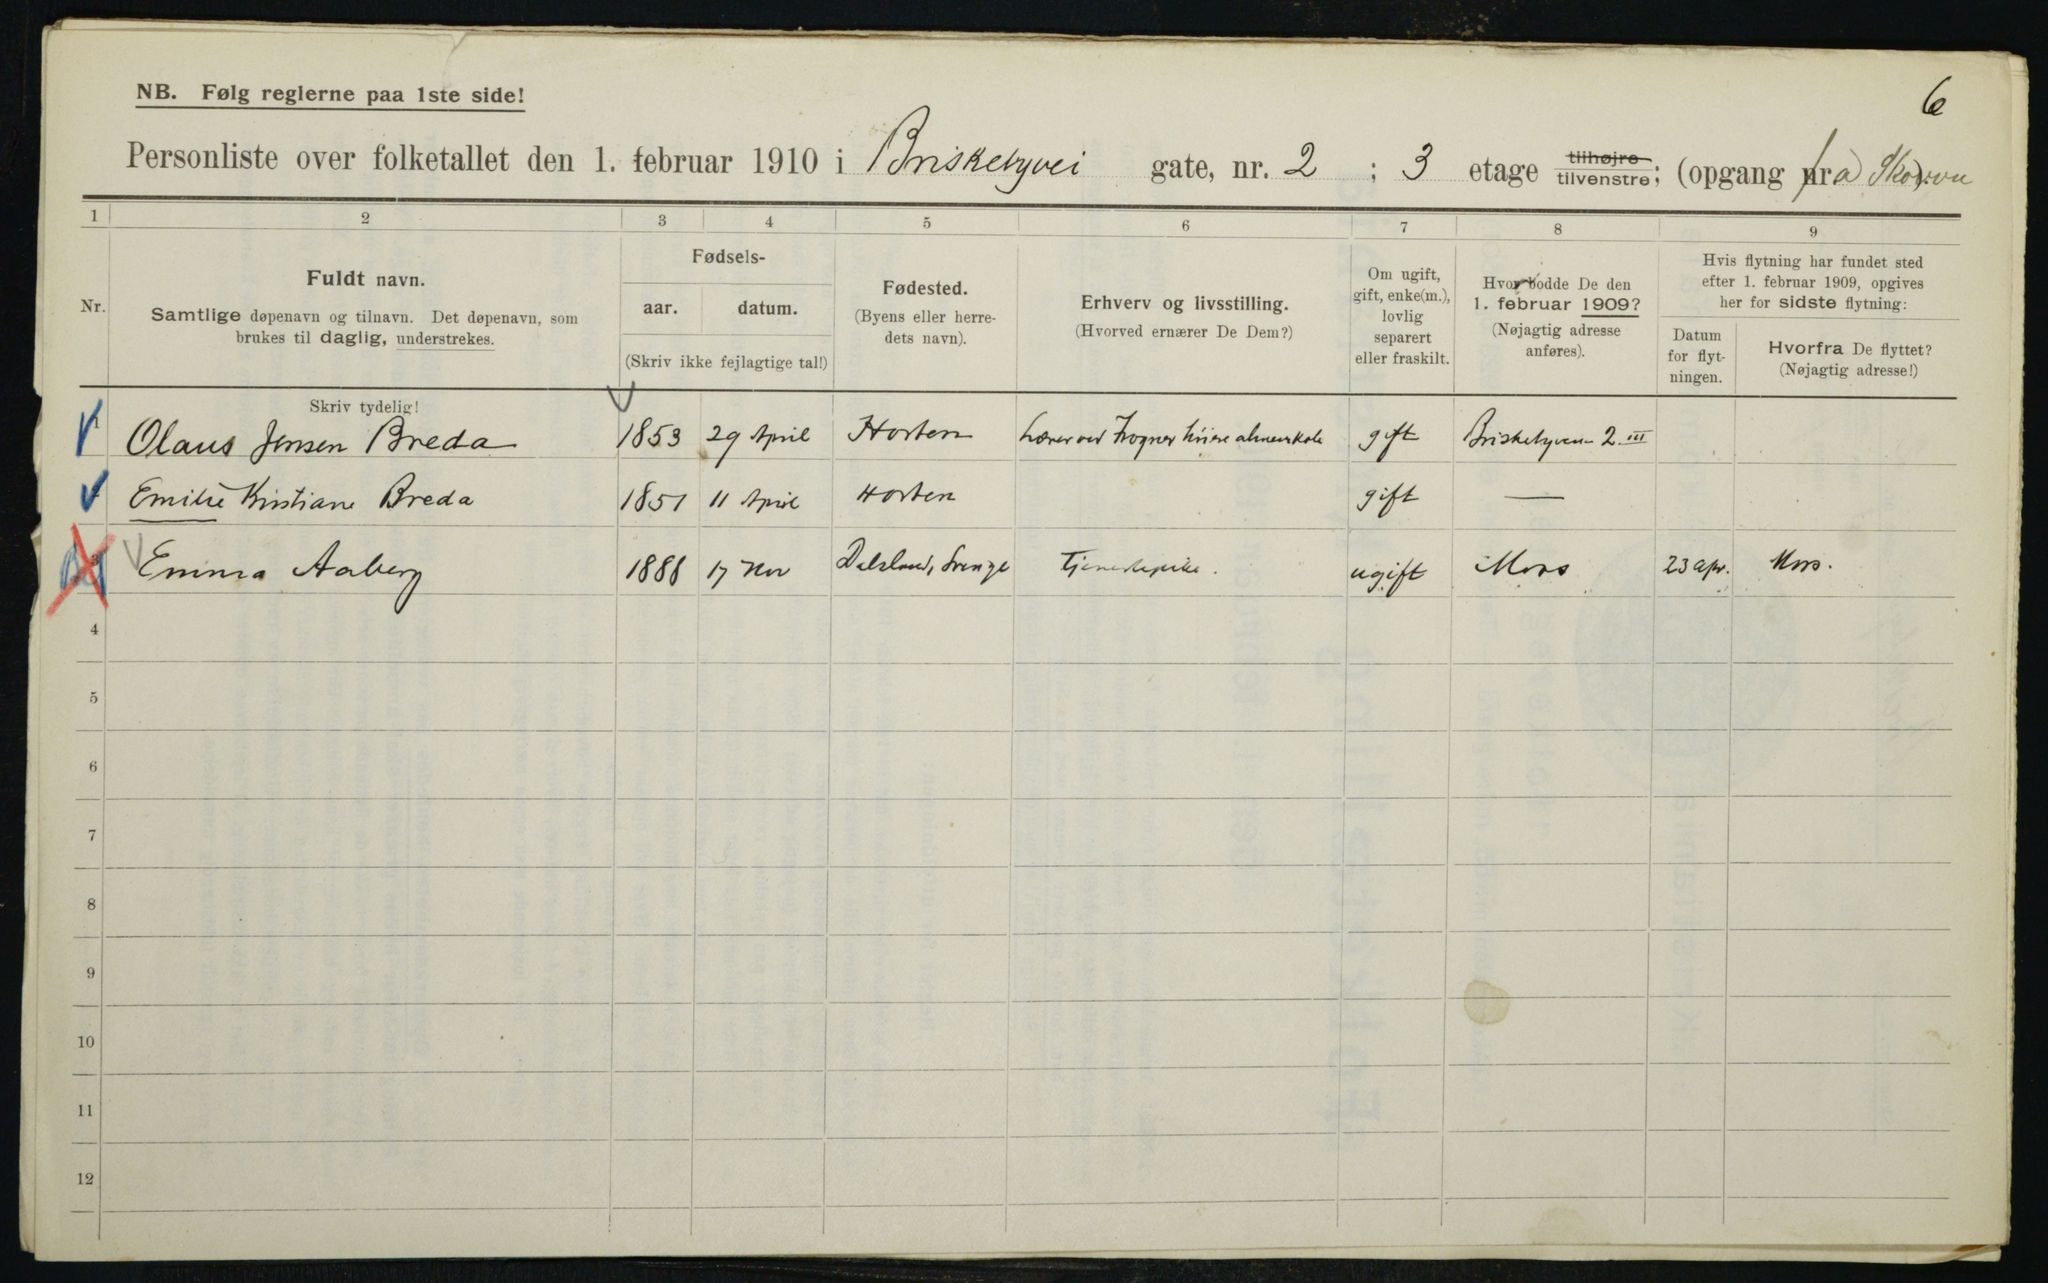 6
NB. Følg reglerne paa 1ste side!
Personliste over folketallet den 1. februar 1910 i Briskebyvei gate, nr. 2 ; 3 etage tilhøjre tilvenstre; (opgang nr. fra
1 2 3 4 5 6 7 8 9
Nr.
Fuldt navn.
Samtlige døpenavn og tilnavn. Det døpenavn, som
brukes til daglig, understrekes.
Skriv tydelig!
Fødsels-
aar. datum.
(Skriv ikke fejlagtige tal!)
Fødested.
(Byens eller herre-
dets navn).
Erhverv og livsstilling.
(Hvorved ernærer De Dem?)
Om ugift,
gift, enke(m.),
lovlig
separert
eller fraskilt.
Hvor bodde De den
1. februar 1909?
(Nøjagtig adresse
anføres).
Hvis flytning har fundet sted
efter 1. februar 1909, opgives
her for sidste flytning:
Datum
for flyt-
ningen.
Hvorfra De flyttet?
(Nøjagtig adresse!)
1 Olaus Jensen Breda 1853 29 April Horten Lærer ved Frogner høiere almenskole gift Briskebyveien 2 III
Emilie Kristiane Breda 1851 11 April Horten gift —
3 Emma Aaberg 1888 17 Nov Dalsland, Sverige Tjenestepike. ugift Moss 23 apr. Moss.
4
5
6
7
8
9
10
11
12